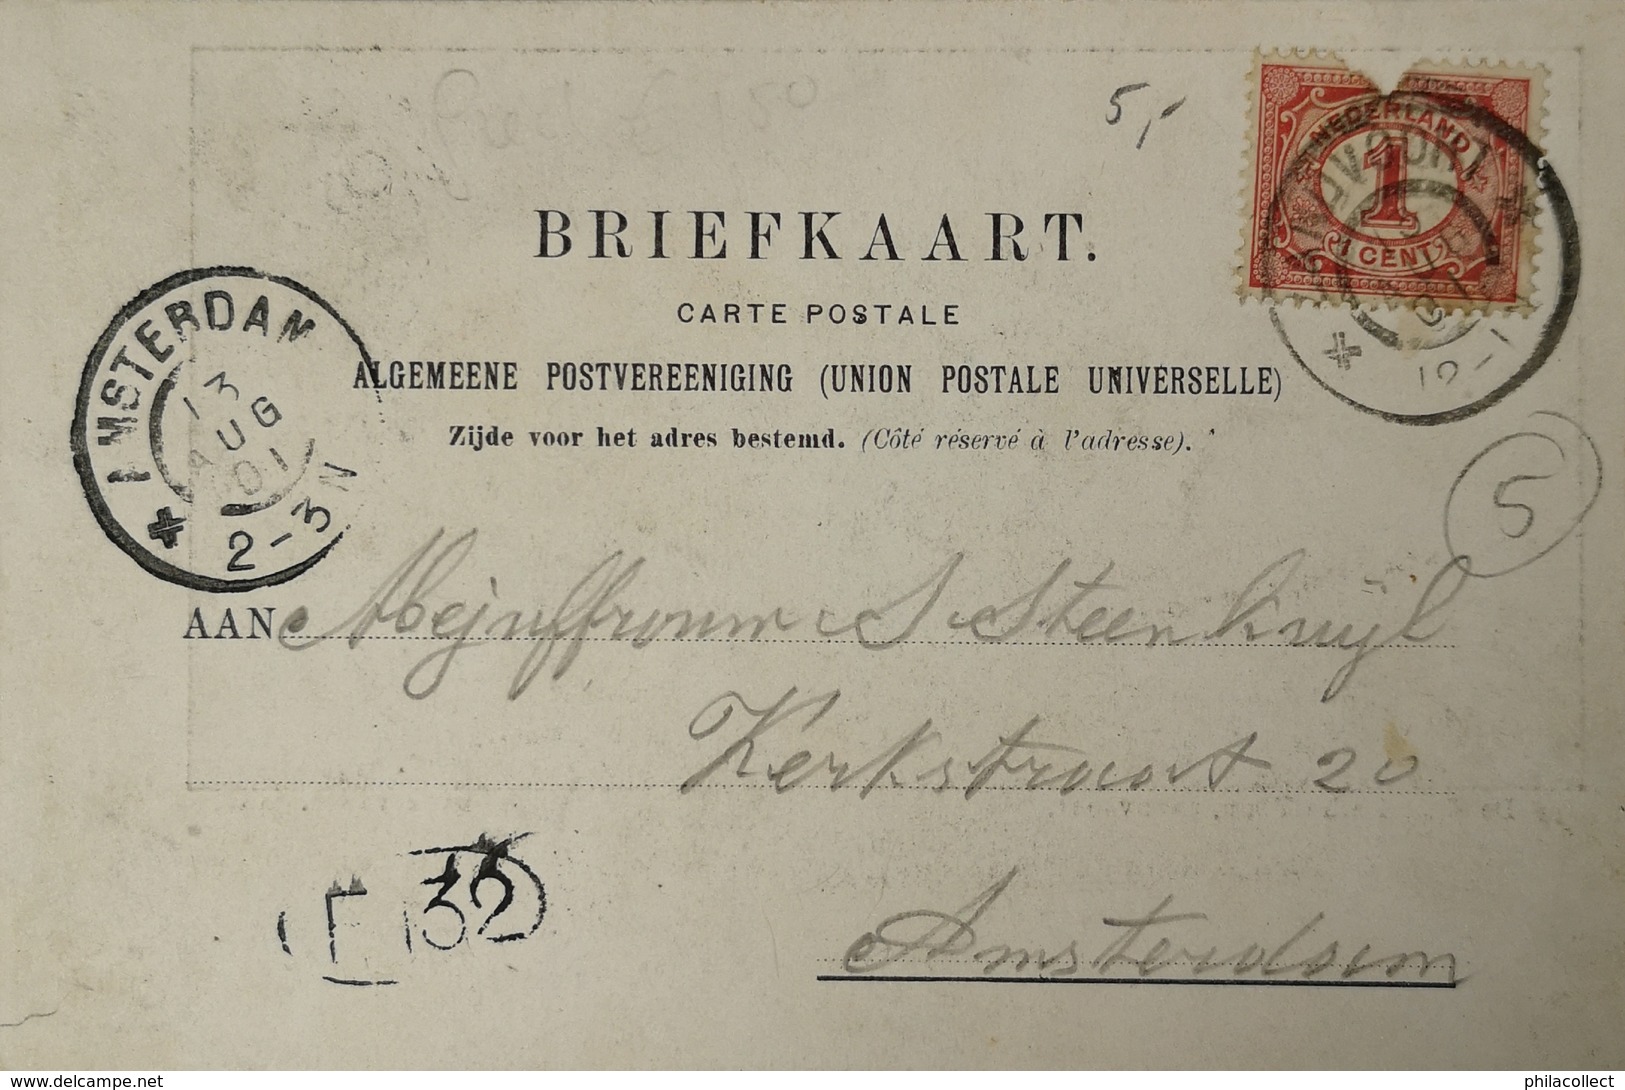 5,-
NEDERLAND
1
1 CENT
12-1
BRIEFKAART.
CARTE POSTALE
ALGEMEENE POSTVEREENIGING (UNION POSTALE UNIVERSELLE)
Zijde voor het adres bestemd. (Côté réservé à l'adresse).
AMSTERDAM
13
AUG
01
2-3N
5
AAN Mejuffrouw S. Steenkuyl
Kerkstraat 20
Amsterdam
32
delcampe.net
philacollect